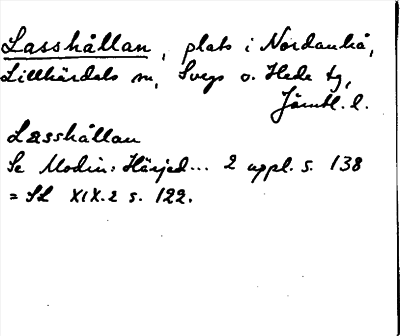 Lasshållan, plats i Nordanhå,
Lillhärdals sn, Svegs o. Hede tg,
Jämtl. l.
Lasshållan
Se Modin: Härjed... 2 uppl. s. 138
= SL XIX.2 s. 122.